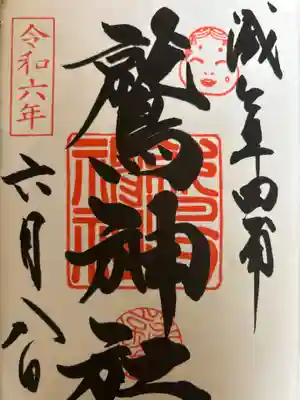 浅草田甫
鷲神社
令和六年
六月八日